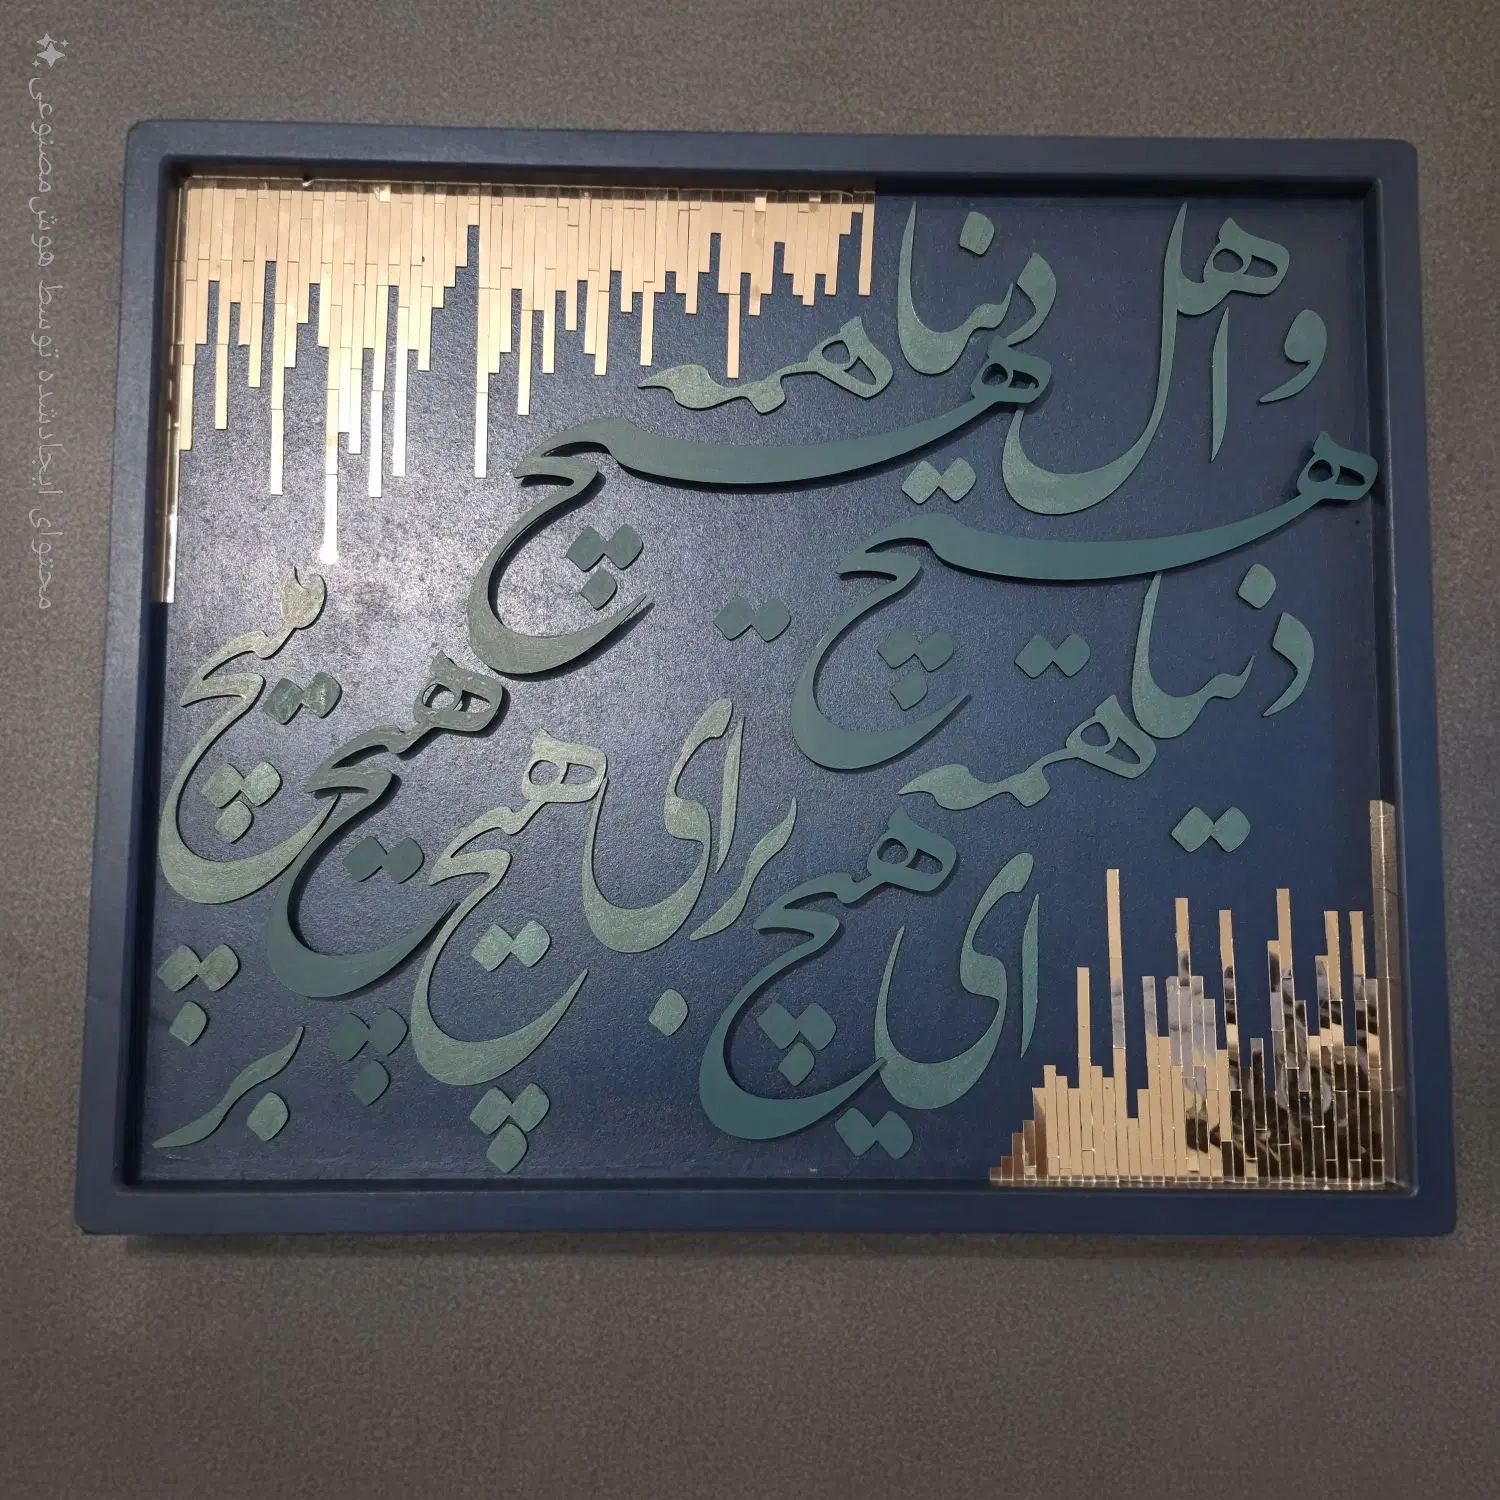 دنیا همه هیچ
و اهل دنیا همه هیچ
ای هیچ برای هیچ
بر هیچ مپیچ
محتوای ایجادشده توسط هوش مصنوعی